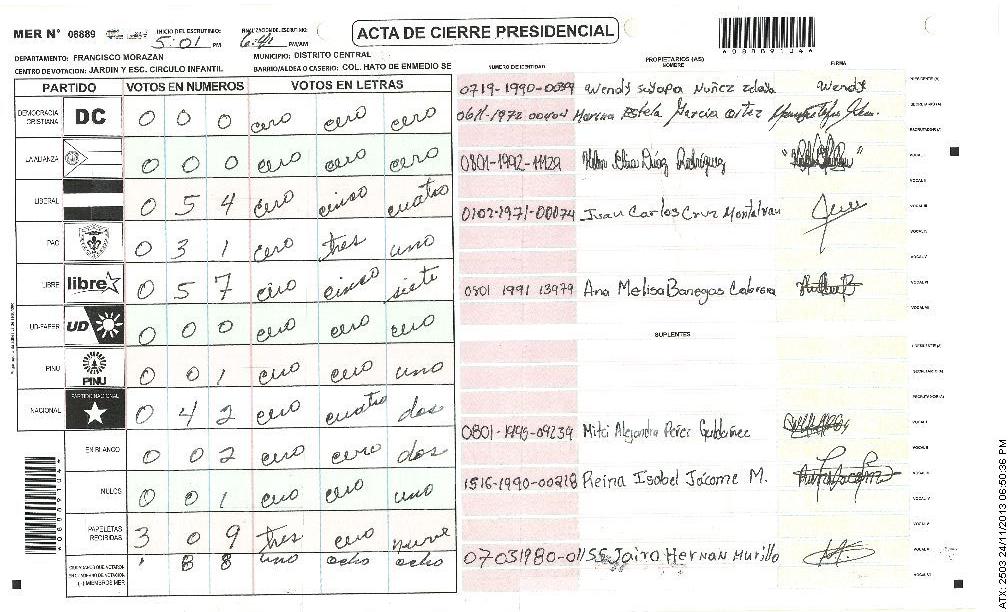 MER N° 08889 INICIO DEL ESCRUTINIO: 5:01 PM PM/AM
ACTA DE CIERRE PRESIDENCIAL
DEPARTAMENTO: FRANCISCO MORAZAN MUNICIPIO: DISTRITO CENTRAL
CENTRO DE VOTACION: JARDIN Y ESC. CIRCULO INFANTIL BARRIO/ALDEA O CASERIO: COL. HATO DE ENMEDIO SE
PARTIDO VOTOS EN NUMEROS VOTOS EN LETRAS
DEMOCRACIA CRISTIANA DC 0 0 0 cero cero cero
LA ALIANZA 0 0 0 cero cero cero
LIBERAL 0 5 4 cero cinco cuatro
PAC 0 3 1 cero tres uno
LIBRE libre 0 5 7 cero cinco siete
UD-FAPER UD 0 0 0 cero cero cero
PINU PINU 0 0 1 cero cero uno
NACIONAL PARTIDO NACIONAL 0 4 2 cero cuatro dos
EN BLANCO 0 0 2 cero cero dos
NULOS 0 0 1 cero cero uno
PAPELETAS RECIBIDAS 3 0 9 tres cero nueve
1 8 8 uno ocho ocho
NUMERO DE IDENTIDAD PROPIETARIOS (AS) NOMBRE FIRMA
0719-1990-0039 Wendy Nuñez Wendy
Estela Garcia
0801-1992- Diaz Rodriguez
0102-1971-00074 Juan Carlos Cruz Montalvan
0801 1991 13979 Ana Melisa Banegas Cabrera
SUPLENTES
Alejandra Perez
1516-1990-00218 Reina Isabel Jácome M.
Jairo Hernan Murillo
ATX: 2503 24/11/2013 06:50:36 PM